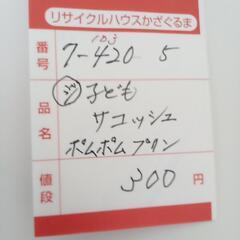 リサイクルハウスかざぐるま
番号 7-420 5
103
品名 子ども
サコッシュ
ポムポムプリン
値段 300 円